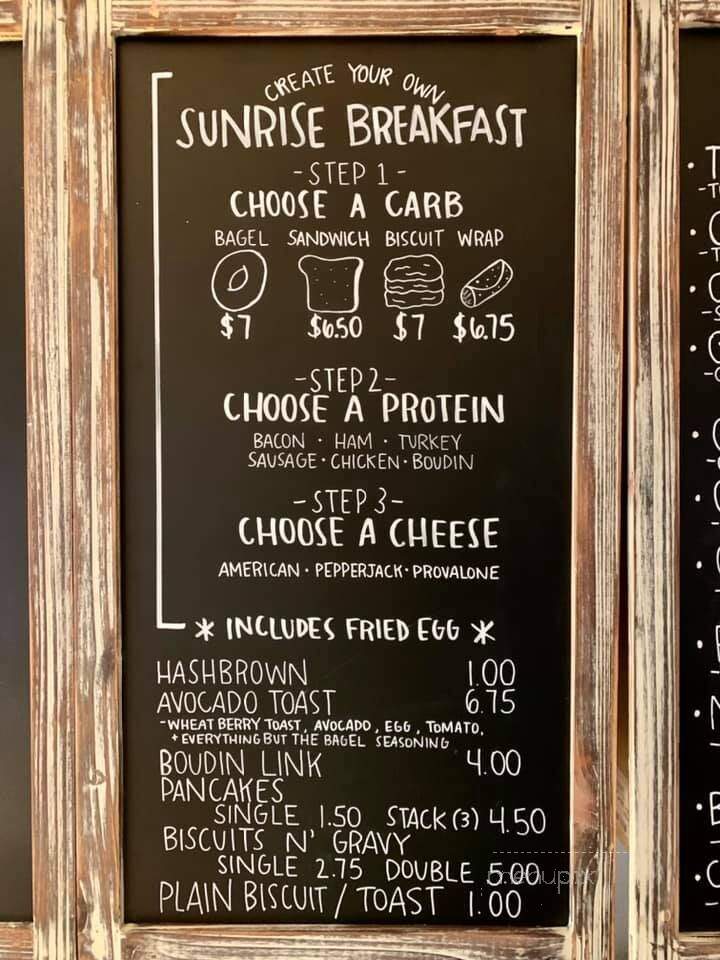 CREATE YOUR OWN
SUNRISE BREAKFAST
-STEP 1-
CHOOSE A CARB
BAGEL SANDWICH BISCUIT WRAP
$7 $6.50 $7 $6.75
-STEP 2-
CHOOSE A PROTEIN
BACON · HAM · TURKEY
SAUSAGE · CHICKEN · BOUDIN
-STEP 3-
CHOOSE A CHEESE
AMERICAN · PEPPERJACK · PROVALONE
* INCLUDES FRIED EGG *
HASHBROWN 1.00
AVOCADO TOAST 6.75
-WHEAT BERRY TOAST, AVOCADO, EGG, TOMATO,
+ EVERYTHING BUT THE BAGEL SEASONING
BOUDIN LINK 4.00
PANCAKES
SINGLE 1.50 STACK (3) 4.50
BISCUITS N' GRAVY
SINGLE 2.75 DOUBLE 5.00
menupix
PLAIN BISCUIT / TOAST 1.00